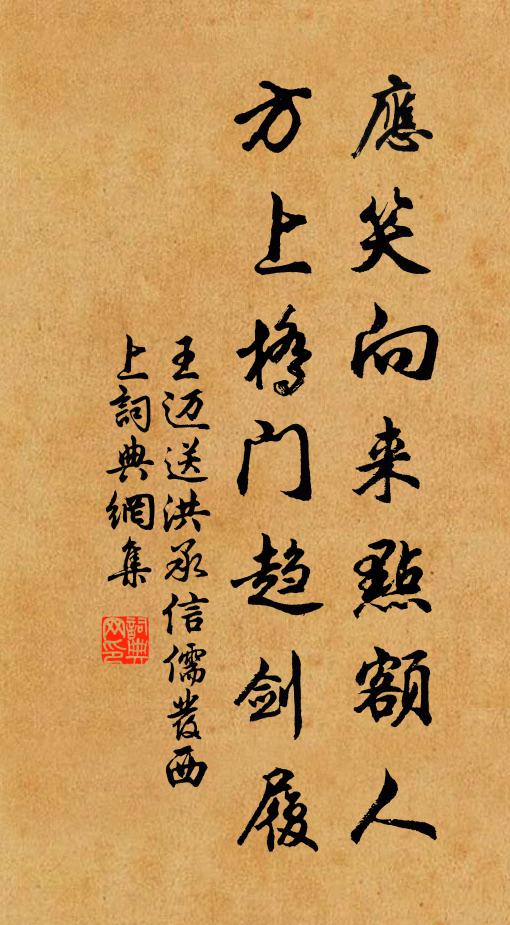 應笑向来點額人
方上橋门趋剑履
王迈送洪承信儒發西
上詞典網集
詞典网印